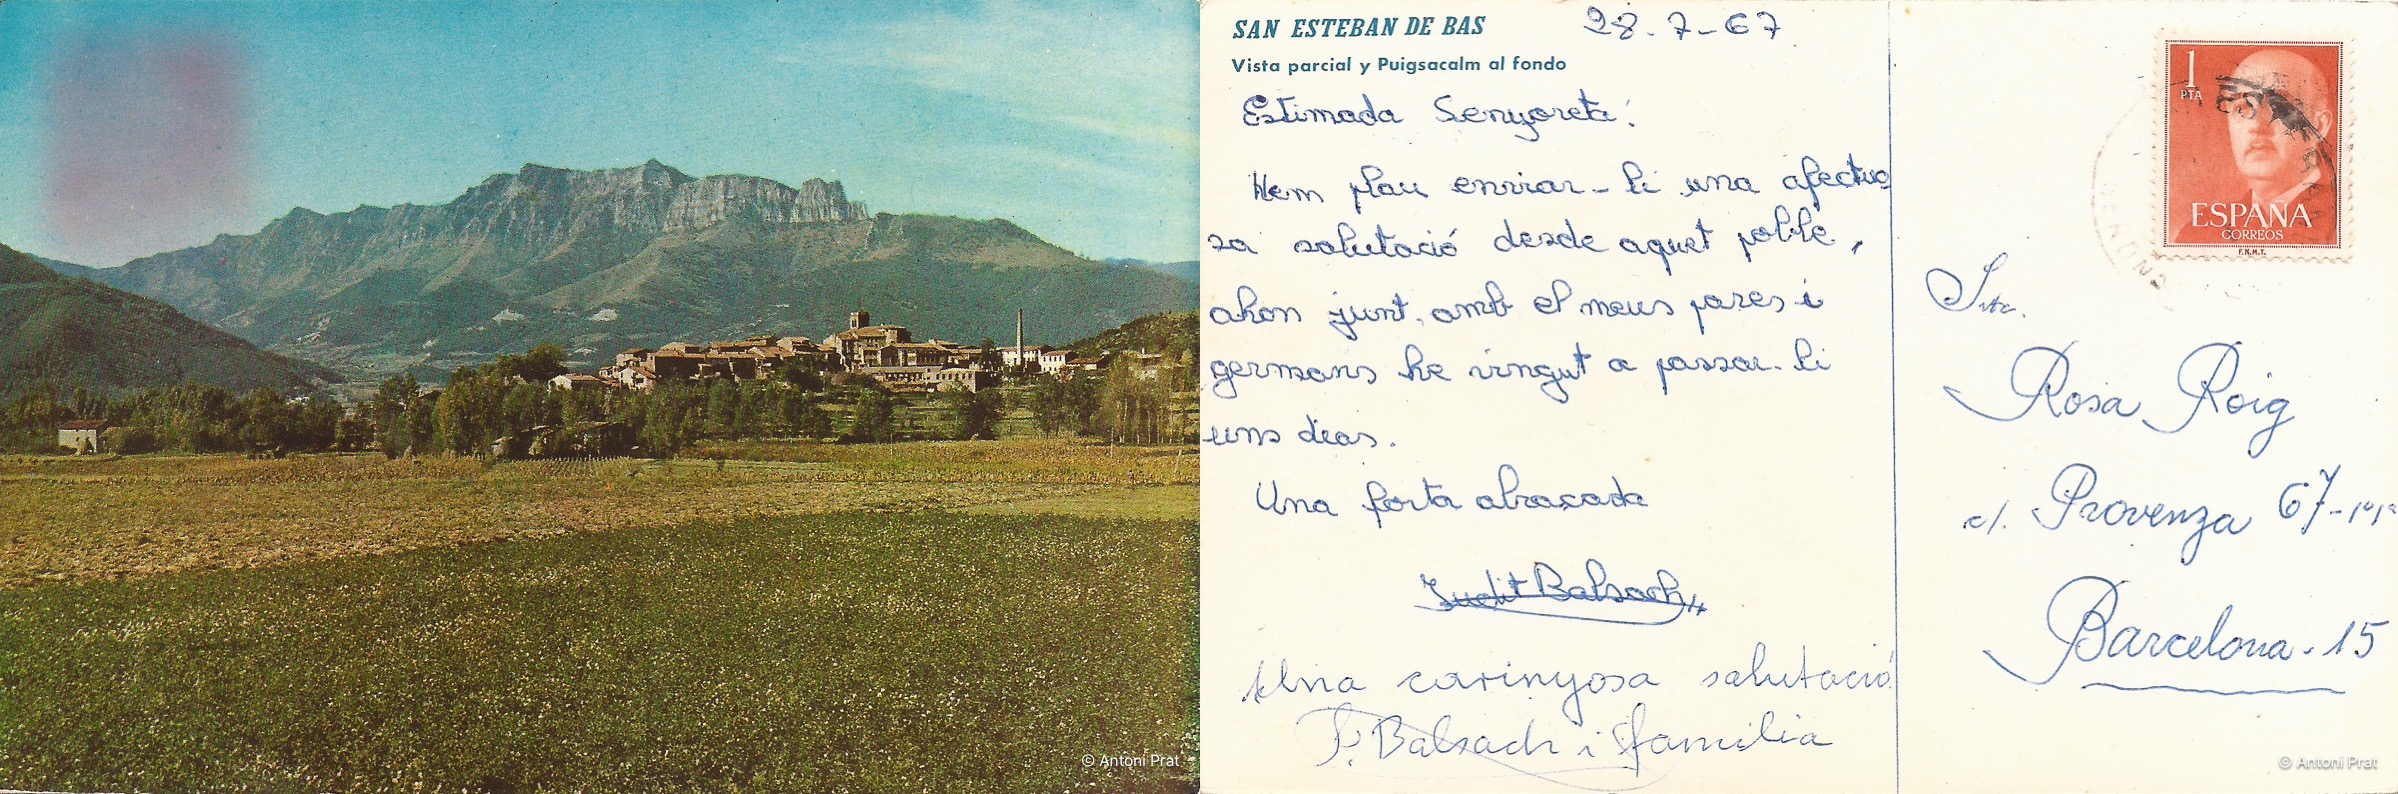 © Antoni Prat
SAN ESTEBAN DE BAS
28-7-67
Vista parcial y Puigsacalm al fondo
Estimada Senyoreta:
Hem plau enviar-li una afectuo
sa salutació desde aquet poble,
ahon junt, amb el meus pares i
germans he vingut a passar-hi
uns dias.
Una forta abraçada
Judit Balsach
Una carinyosa salutació
F. Balsach i familia
1
PTA
ESPAÑA
CORREOS
F.N.M.T.
Srta.
Rosa Roig
c/. Provenza 67-1º1ª
Barcelona-15
© Antoni Prat